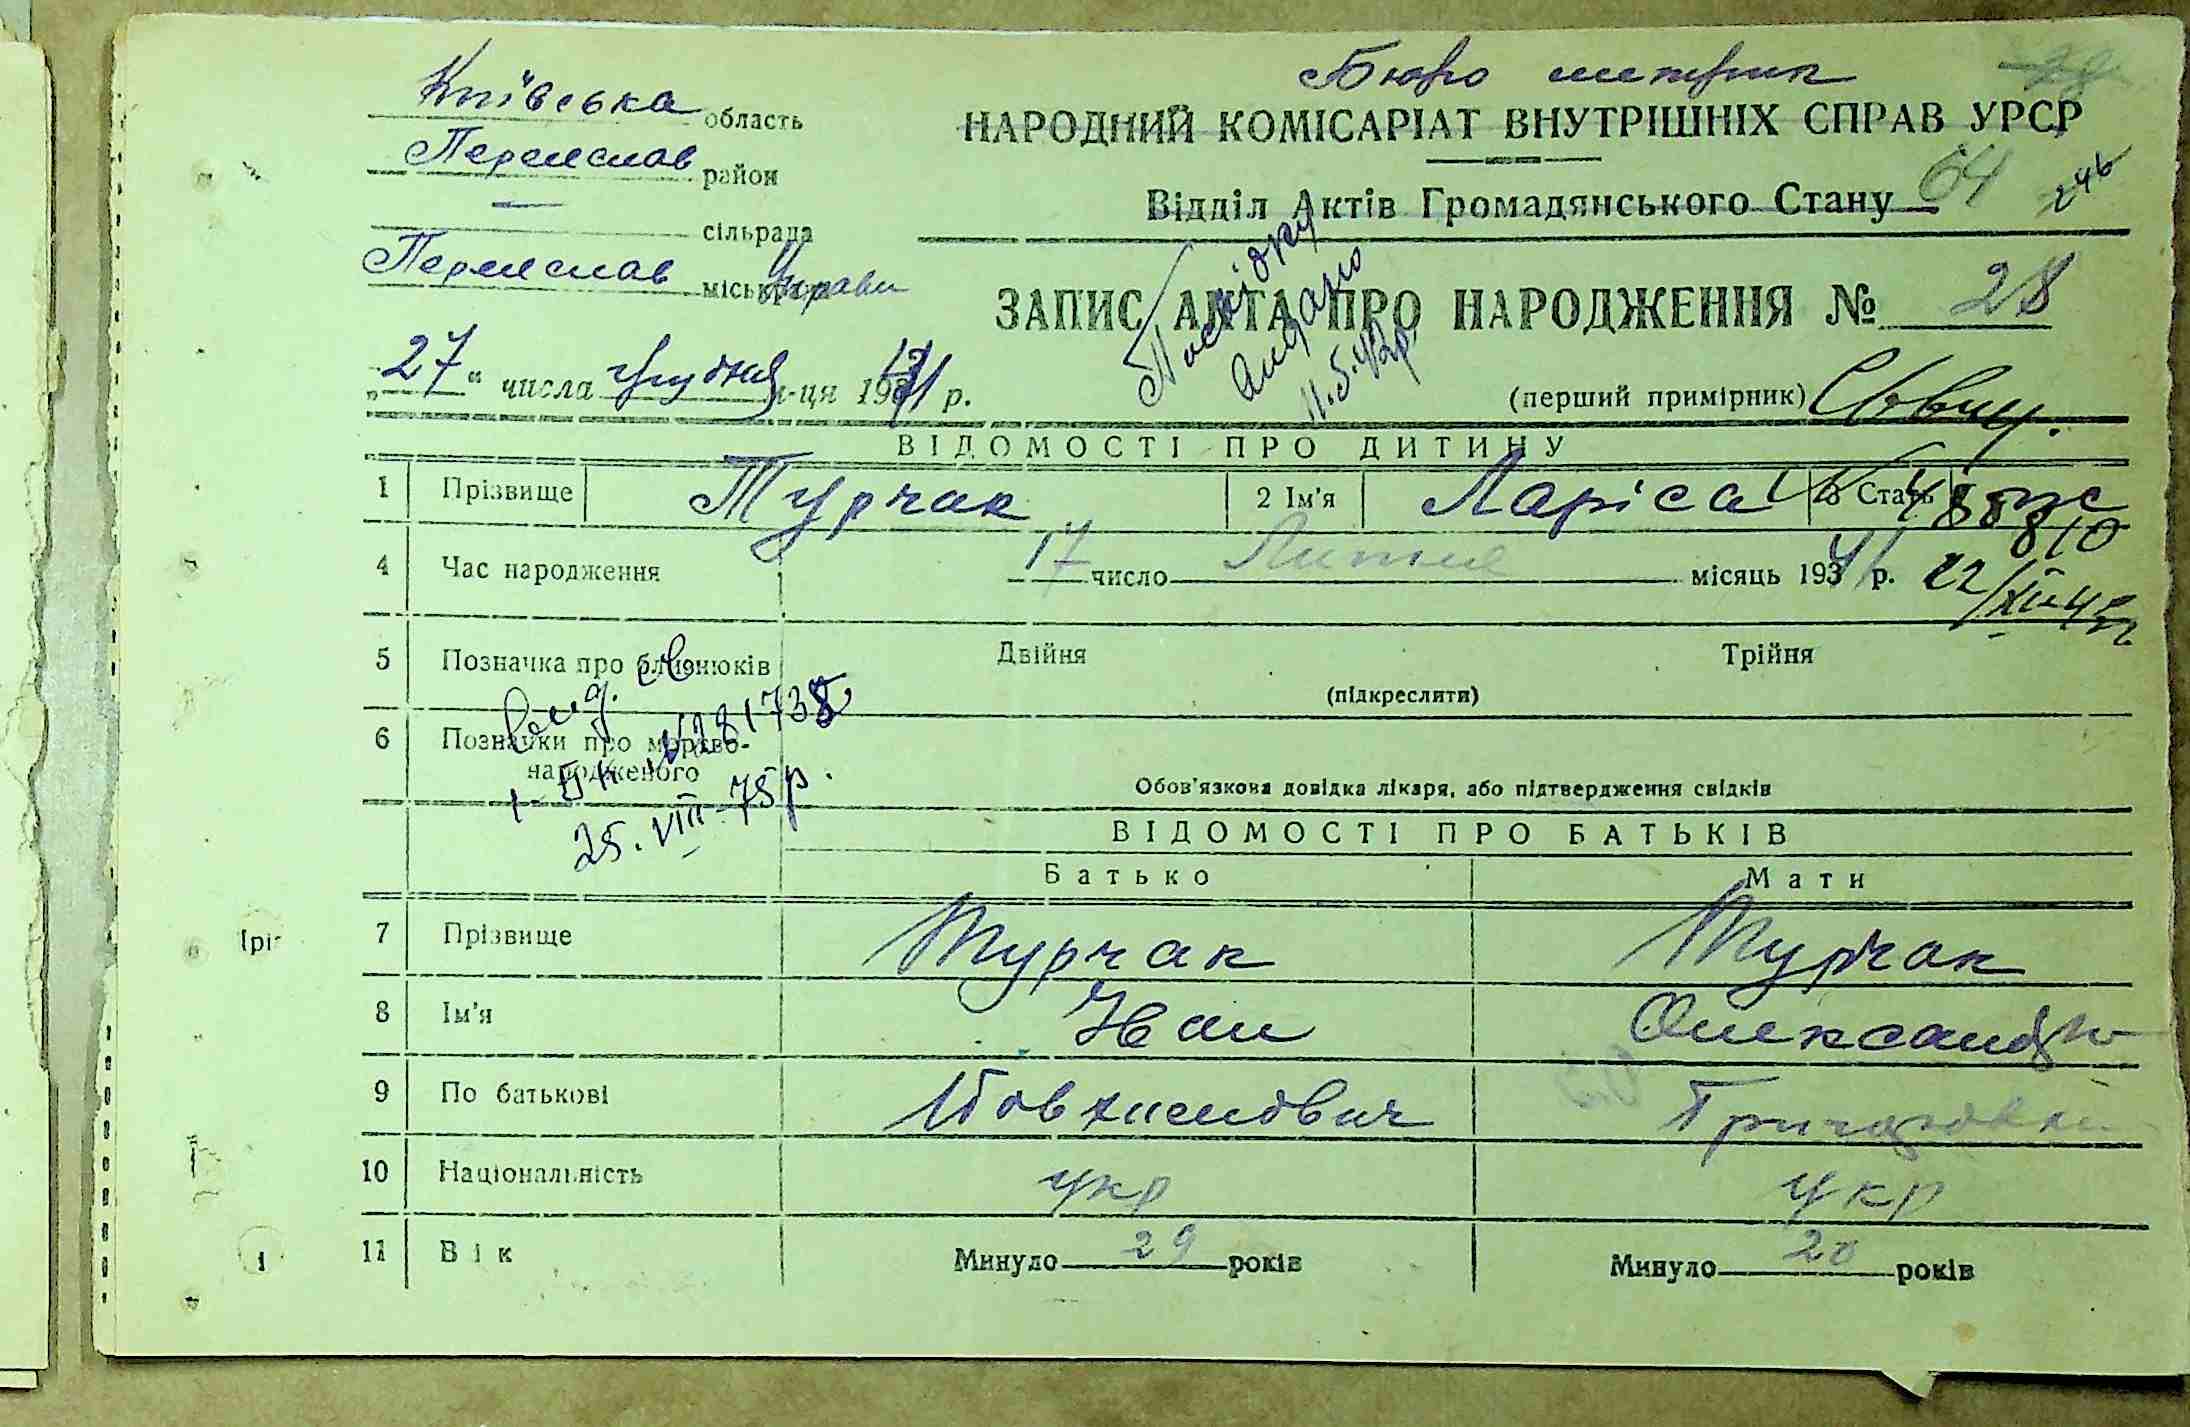 Київська область
Бюро метрик
НАРОДНИЙ КОМІСАРІАТ ВНУТРІШНІХ СПРАВ УРСР
Переяслав район
Відділ Актів Громадянського Стану 64
246
— сільрада
Переяслав міськ Управи
ЗАПИС АКТА ПРО НАРОДЖЕННЯ № 28
Посвідку
видано
11.5.42р.
„27“ числа грудня м-ця 1941 р.
(перший примірник)
ВІДОМОСТІ ПРО ДИТИНУ
1 Прізвище Турчак 2 Ім'я Ларіса 3 Стать ж
4 Час народження 17 число Липня місяць 1941 р.
22/XII-
5 Позначка про близнюків Двійня Трійня
(підкреслити)
6 Позначки про мертво-
народженого
Обов'язкова довідка лікаря, або підтвердження свідків
25.VIII-75р.
ВІДОМОСТІ ПРО БАТЬКІВ
Батько Мати
7 Прізвище Турчак Турчак
8 Ім'я Іван Олександра
9 По батькові
10 Національність укр укр
11 Вік Минуло 29 років Минуло 20 років